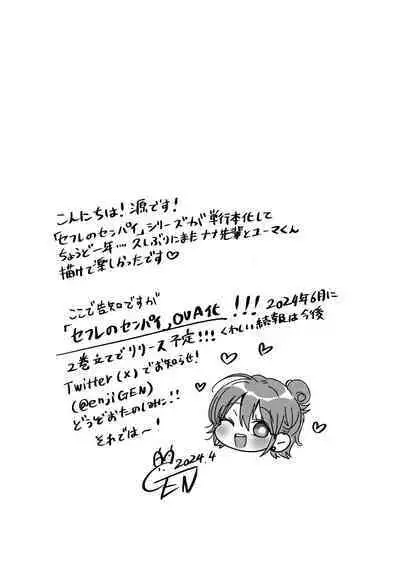 こんにちは！源です！
「セフレのセンパイ」シリーズが単行本化して
ちょうど一年…久しぶりにまたナナ先輩とユーマくん
描けて楽しかったです♡
ここで告知ですが
「セフレのセンパイ」OVA化!!! 2024年6月に
2巻立てでリリース予定!!! くわしい続報は今後
Twitter(X)でお知らせ!
(@enjiGEN)
どうぞおたのしみに!!
それでは〜!
2024.4
GEN